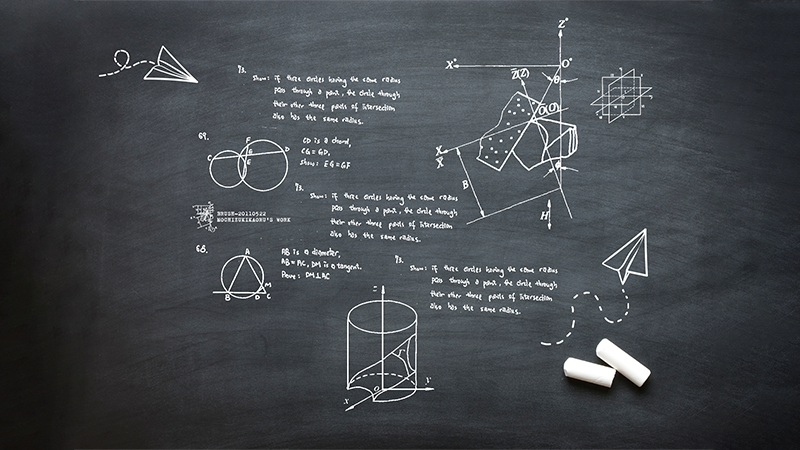 93.
Show: if three circles having the same radius
pass through a point, the circle through
their other three points of intersection
also has the same radius.
69.
CD is a chord,
CG = GD,
Show: EG = GF
F
C
G
D
E
BRUSH-20110522
MOCHIZUKIKAORU'S WORK
93.
Show: if three circles having the same radius
pass through a point, the circle through
their other three points of intersection
also has the same radius.
68.
AB is a diameter,
AB = AC, DM is a tangent.
Prove: DM⊥AC
A
M
B
D
C
93.
Show: if three circles having the same radius
pass through a point, the circle through
their other three points of intersection
also has the same radius.
Z°
X°
O°
Z(Z)
θ
O(O)
X
X
B
H
r
O
x
y